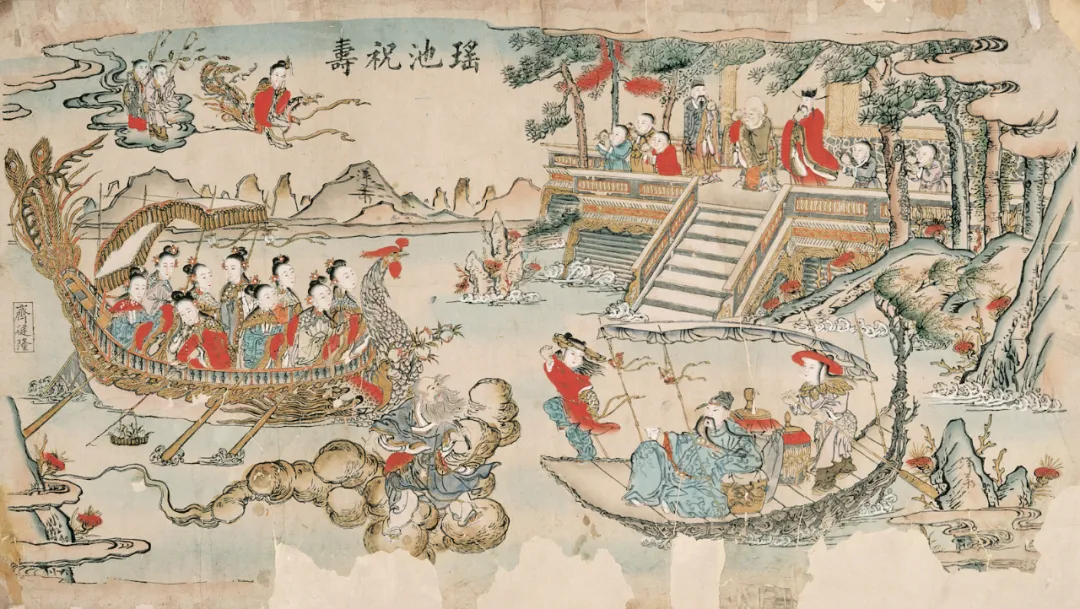 瑤池祝壽
齊健隆